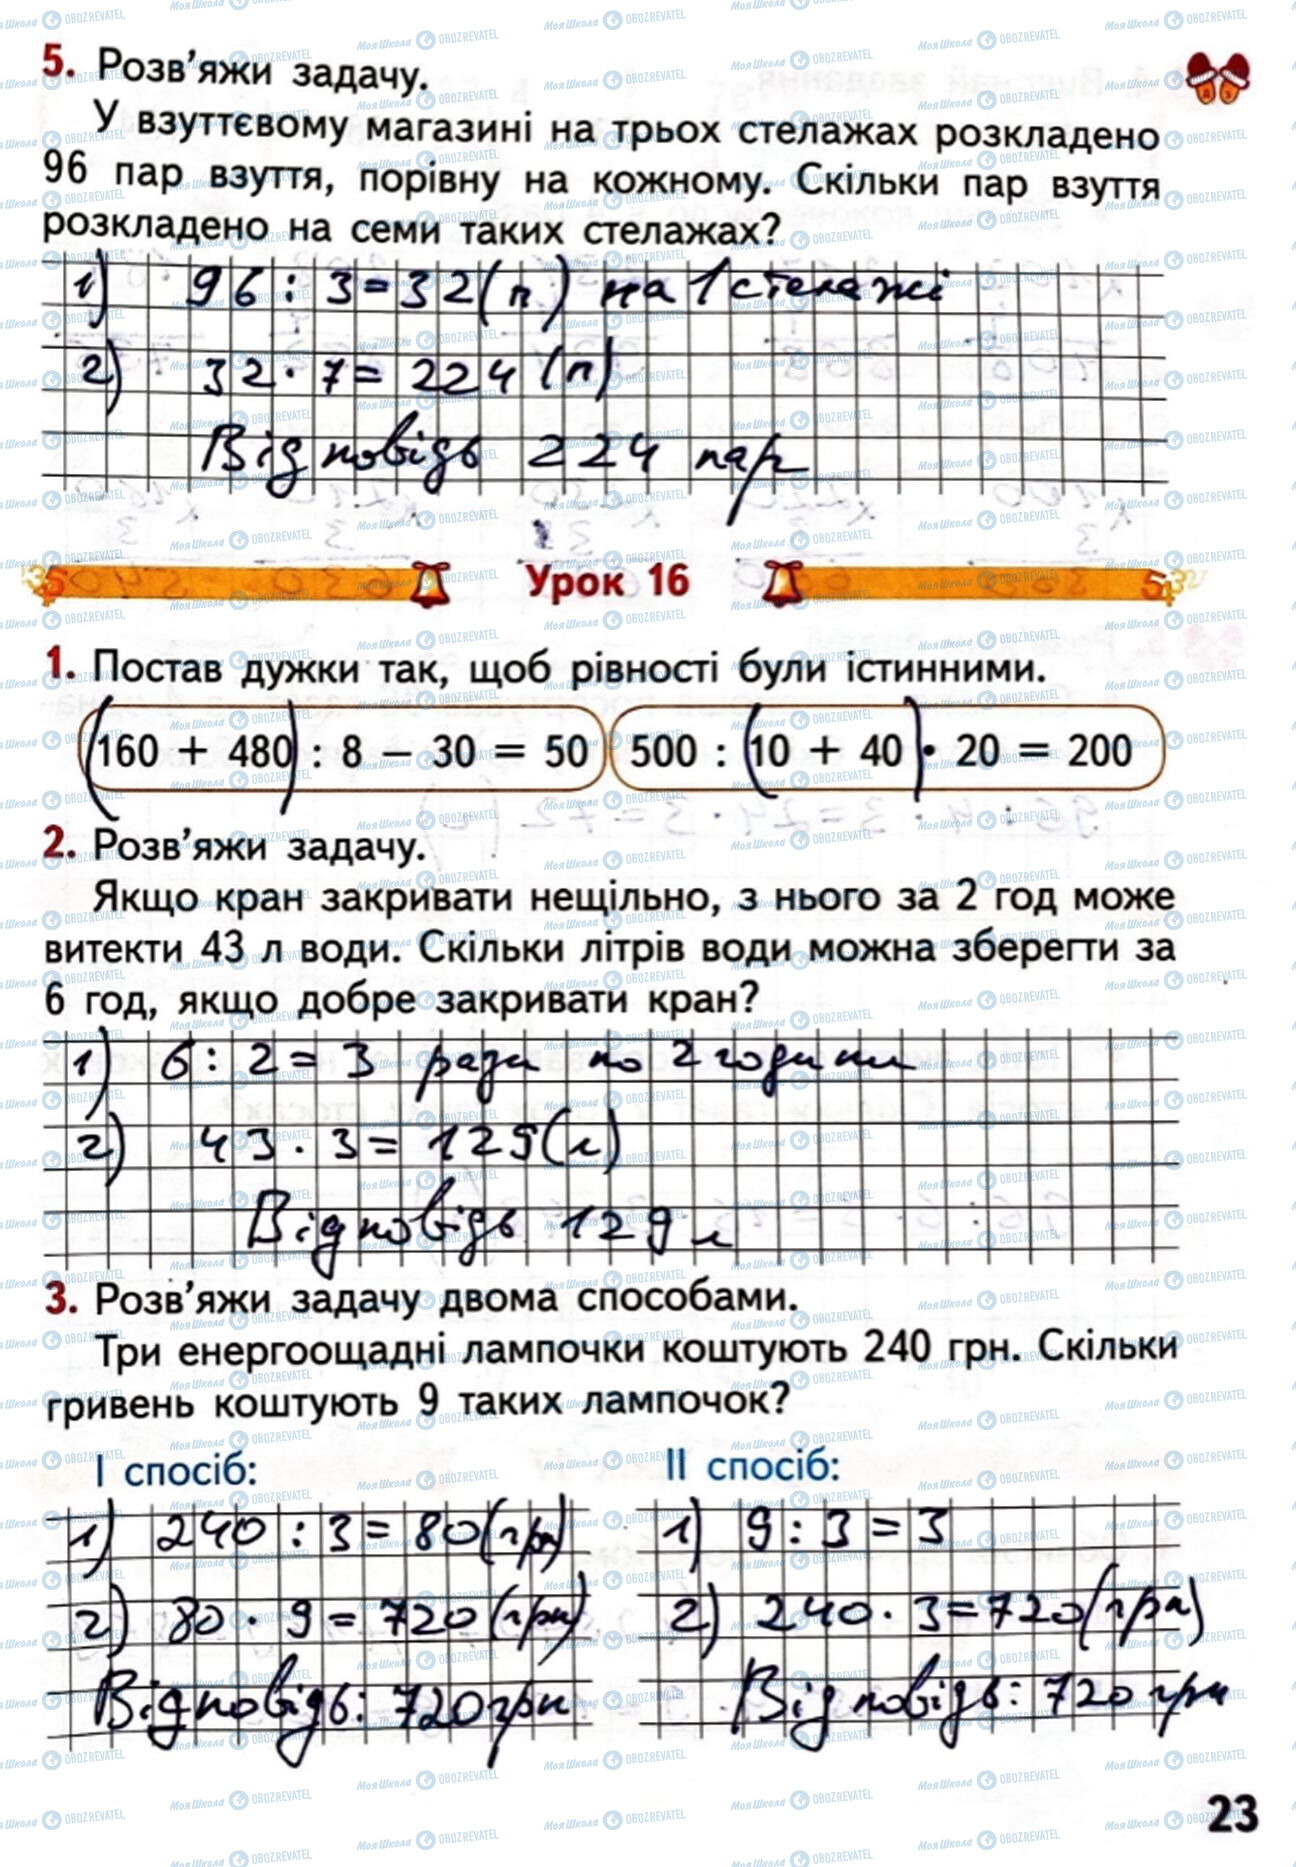 5. Розв'яжи задачу.
У взуттєвому магазині на трьох стелажах розкладено
96 пар взуття, порівну на кожному. Скільки пар взуття
розкладено на семи таких стелажах?
1) 96 : 3 = 32 (п) на 1 стелажі
2) 32 · 7 = 224 (п)
Відповідь 224 пар
Урок 16
1. Постав дужки так, щоб рівності були істинними.
(160 + 480) : 8 − 30 = 50 500 : (10 + 40) · 20 = 200
2. Розв'яжи задачу.
Якщо кран закривати нещільно, з нього за 2 год може
витекти 43 л води. Скільки літрів води можна зберегти за
6 год, якщо добре закривати кран?
1) 6 : 2 = 3 рази по 2 години
2) 43 · 3 = 129 (л)
Відповідь 129 л
3. Розв'яжи задачу двома способами.
Три енергоощадні лампочки коштують 240 грн. Скільки
гривень коштують 9 таких лампочок?
І спосіб: ІІ спосіб:
1) 240 : 3 = 80 (грн) 1) 9 : 3 = 3
2) 80 · 9 = 720 (грн) 2) 240 · 3 = 720 (грн)
Відповідь: 720 грн Відповідь: 720 грн
23
МояШкола OBOZREVATEL